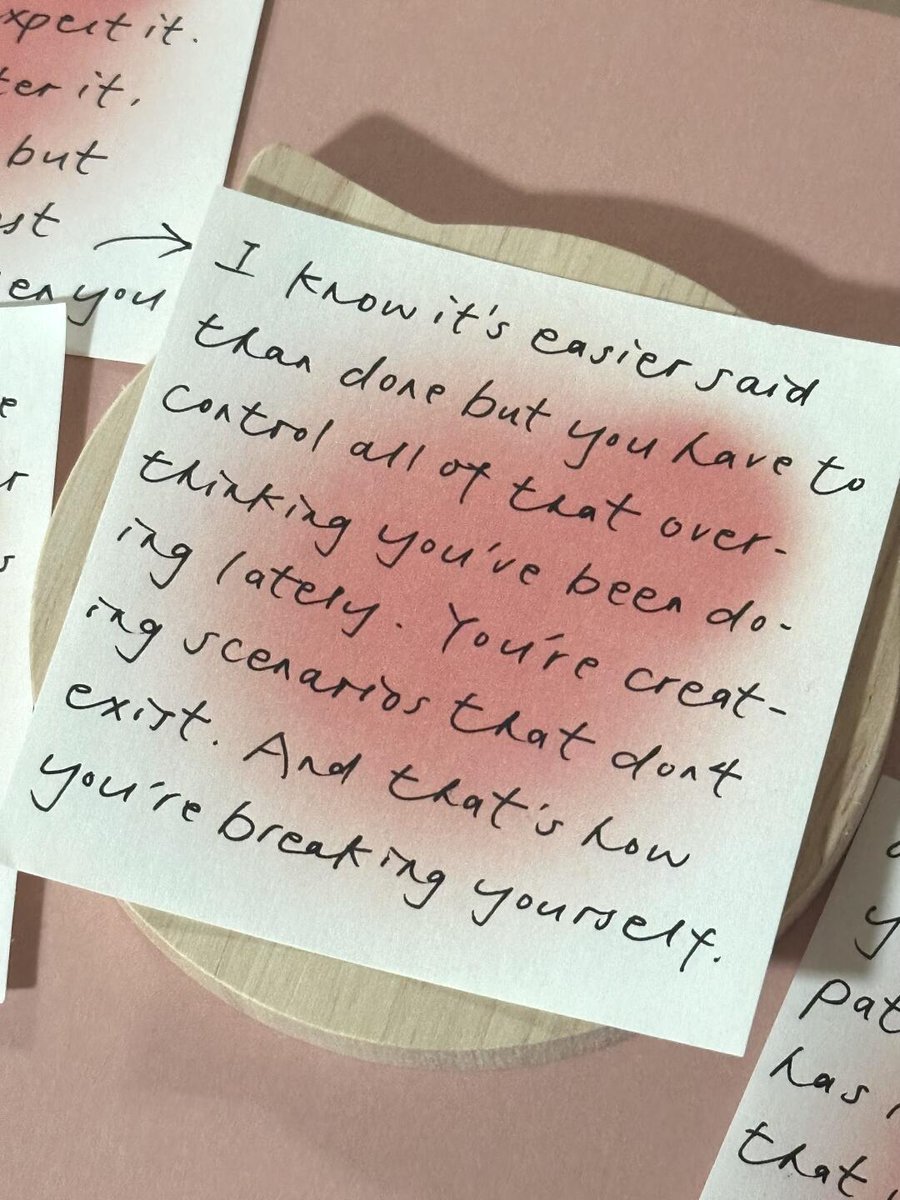 it.
it.
but
you
I know it's easier said
than done but you have to
control all of that over-
thinking you've been do-
ing lately. You're creat-
ing scenarios that don't
exist. And that's how
you're breaking yourself.
has
that